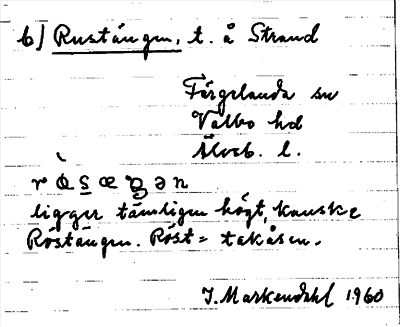 b) Rustängen, t. å Strand
Färgelanda sn
Valbo hd
Älvsb. l.
ligger tämligen högt, kanske
Röstängen. Röst = takåsen.
J. Markendahl 1960